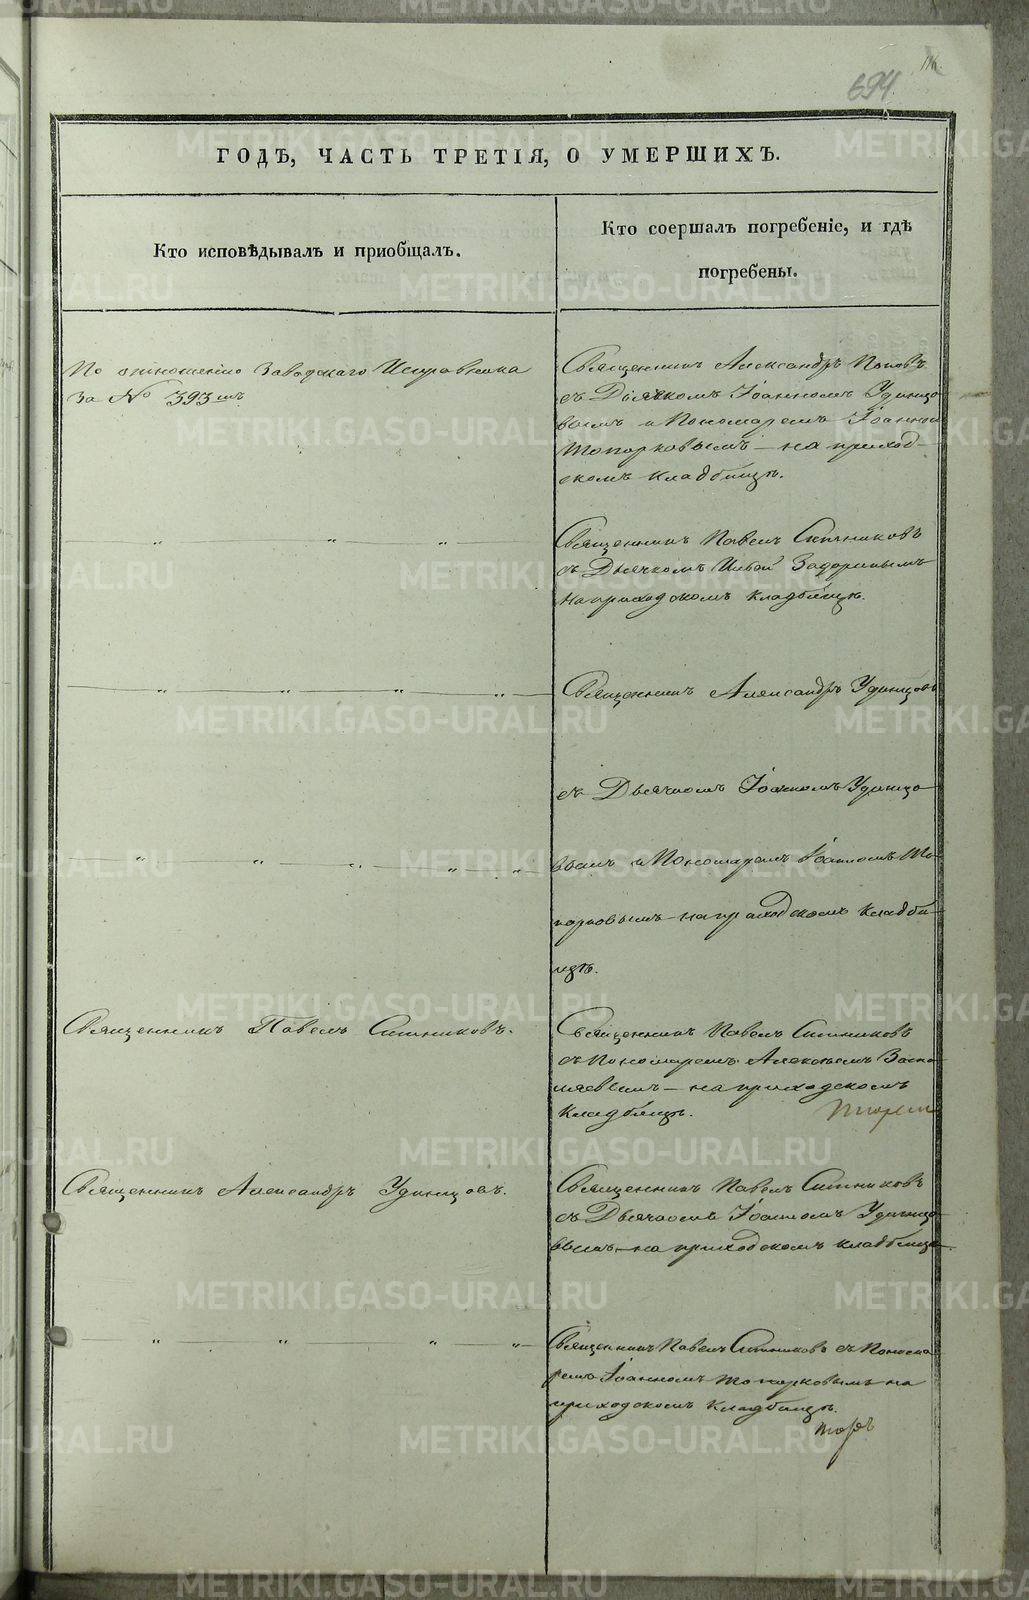 694.
ГОДѢ, ЧАСТЬ ТРЕТІЯ, О УМЕРШИХЪ.
Кто исповѣдывалъ и пріобщалъ.
Кто соершалъ погребеніе, и гдѣ
погребены.
По отношенію Заводскаго Исправника
За № 393мъ
Священникъ Александръ Поповъ
съ Дьячкомъ Іоанномъ Удинцо-
вымъ и Пономаремъ Іоанном
Топорковымъ – на приход-
скомъ кладбищѣ.
Священникъ Павелъ Ситниковъ
съ Дьячкомъ
на приходскомъ кладбищѣ.
Священникъ Александръ Удинцовъ
съ Дьячкомъ Іоанномъ Удинцо-
вымъ и Пономаремъ Іоанномъ То-
порковымъ – на приходскомъ кладби-
щѣ.
Священникъ Павелъ Ситниковъ.
Священникъ Павелъ Ситниковъ
съ Пономаремъ Алексѣемъ Васи-
льевымъ – на приходскомъ
кладбищѣ.
Священникъ Александръ Удинцовъ.
Священникъ Павелъ Ситниковъ
съ Дьячкомъ Іоанномъ Удинцо-
вымъ – на приходскомъ кладбищѣ.
Священникъ Павелъ Ситниковъ съ Понома
ремъ Іоанномъ Топорковымъ на
приходскомъ кладбищѣ.
METRIKI.GASO-URAL.RU